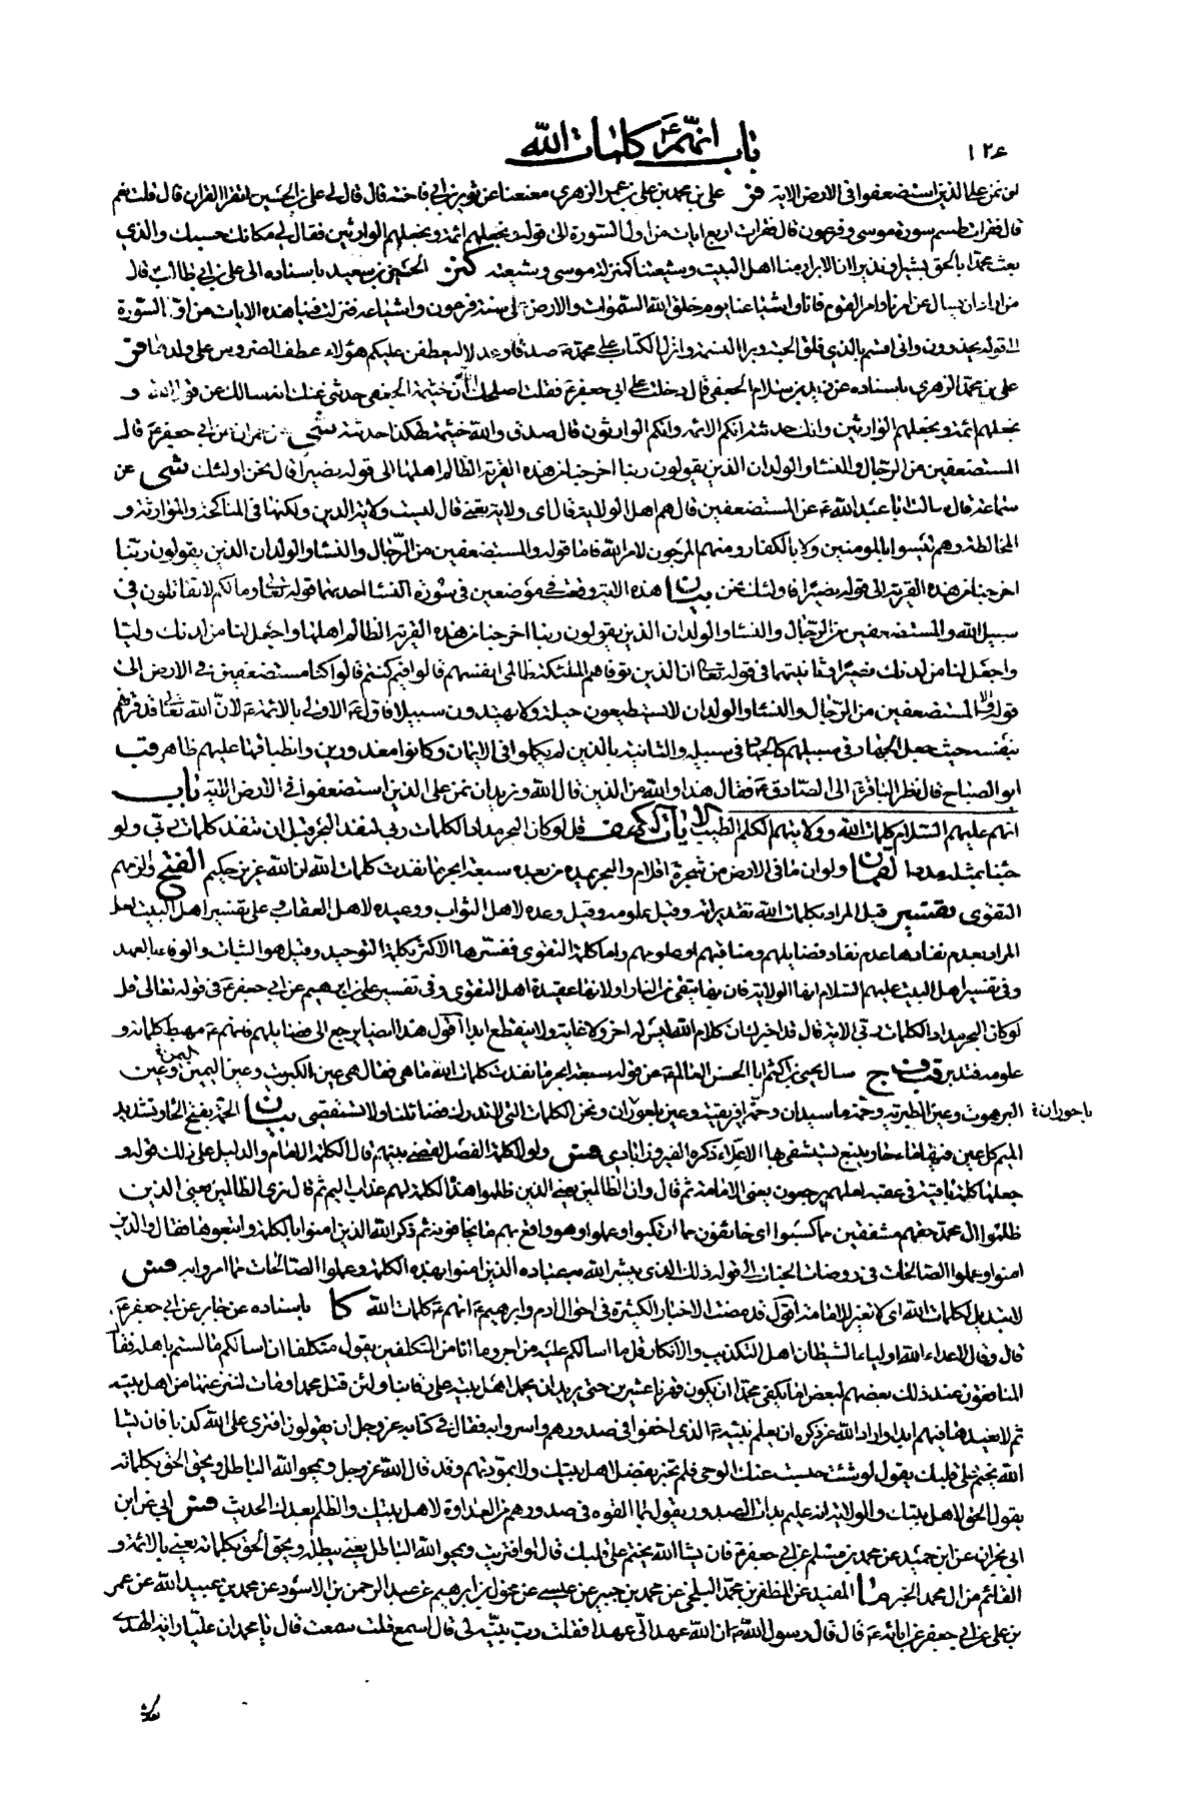 ١٢٤
باب انهم ع كلمات الله
ان نمن على الذين استضعفوا في الارض الاية فر علي بن محمد بن علي بن عمر الزهري معنعنا عن ثوير بن ابي فاخته قال قال لي علي بن الحسين ع اتقرا القران قال قلت نعم
قال فقرات طسم سورة موسى وفرعون قال فقرات اربع ايات من اول السورة الى قوله ونجعلهم ائمة ونجعلهم الوارثين فقال لي مكانك حسبك والذي
بعث محمدا بالحق بشيرا ونذيرا ان الابرار منا اهل البيت وشيعتنا كمنزلة موسى وشيعته كنز الحسين بن سعيد باسناده الى علي بن ابي طالب قال
من اراد ان يسال عن امرنا وامر القوم فانا واشياعنا يوم خلق الله السموات والارض على سنة فرعون واشياعه فنزلت فينا هذه الايات من اول السورة
الى قوله يحذرون واني اقسم بالذي فلق الحبة وبرا النسمة وانزل الكتاب على محمد ص صدقا وعدلا ليعطفن عليكم هؤلاء عطف الضروس على ولدها فر
علي بن محمد الزهري باسناده عن زيد بن سلام الجعفي قال دخلت على ابي جعفر ع فقلت اصلحك الله ان خيثمة الجعفي حدثني عنك انه سالك عن قول الله و
نجعلهم ائمة ونجعلهم الوارثين وانك حدثته انكم الائمة وانكم الوارثون قال صدق والله خيثمة لهكذا حدثته شى عن حمران عن ابي جعفر ع قال
المستضعفين من الرجال والنساء والولدان الذين يقولون ربنا اخرجنا من هذه القرية الظالم اهلها الى قوله نصيرا قال نحن اولئك شى عن
سماعة قال سالت ابا عبد الله ع عن المستضعفين قال هم اهل الولاية قال اى ولاية تعني قال ليست ولاية الدين ولكنها في المناكحة والموارثة و
المخالطة وهم ليسوا بالمؤمنين ولا بالكفار ومنهم المرجون لامر الله فاما قوله والمستضعفين من الرجال والنساء والولدان الذين يقولون ربنا
اخرجنا من هذه القرية الى قوله نصيرا فاولئك نحن بيان هذه الاية وقعت في موضعين في سورة النساء احدهما قوله تعالى وما لكم لا تقاتلون في
سبيل الله والمستضعفين من الرجال والنساء والولدان الذين يقولون ربنا اخرجنا من هذه القرية الظالم اهلها واجعل لنا من لدنك وليا
واجعل لنا من لدنك نصيرا وثانيتهما في قوله تعالى ان الذين توفاهم الملئكة ظالمي انفسهم قالوا فيم كنتم قالوا كنا مستضعفين في الارض الى
قوله الا المستضعفين من الرجال والنساء والولدان لا يستطيعون حيلة ولا يهتدون سبيلا فاول ع الاولى بالائمة ع لان الله تعالى قد قرنهم
بنفسه حيث جعل الجهاد في سبيلهم كالجهاد في سبيله والثانية بالذين لم يكملوا في الايمان وكانوا معذورين وانطباقهما عليهم ظاهر قب
ابو الصباح قال نظر الباقر ع الى الصادق ع فقال هذا والله من الذين قال الله ونريدان نمن على الذين استضعفوا في الارض الاية باب
انهم عليهم السلام كلمات الله وولايتهم الكلم الطيب الايات الكهف قل لو كان البحر مدادا لكلمات ربي لنفد البحر قبل ان تنفد كلمات ربي ولو
جئنا بمثله مددا لقمان ولو ان ما في الارض من شجرة اقلام والبحر يمده من بعده سبعة ابحر ما نفدت كلمات الله ان الله عزيز حكيم الفتح والزمهم
التقوى تفسير قيل المراد بكلمات الله تقديراته وقيل علومه وقيل وعده لاهل الثواب ووعيده لاهل العقاب وعلى تفسير اهل البيت لعل
المراد بعدم نفادها عدم نفاد فضايلهم ومناقبهم او علومهم واما كلمة التقوى ففسرها الاكثر بكلمة التوحيد وقيل هو الثبات والوفاء بالعهد
وفي تفسير اهل البيت عليهم السلام انها الولاية فان بها يتقى من النار او لانها عقيدة اهل التقوى وفي تفسير علي بن ابرهيم عن ابي جعفر ع في قوله تعالى قل
لو كان البحر مدادا لكلمات ربي الاية قال قد اخبر ان كلام الله ليس له اخر ولا غاية ولا ينقطع ابدا اقول هذا ايضا يرجع الى فضايلهم فانهم ع مهبط كلماته و
علومه فتدبر قب ف ج سال يحيى بن اكثم ابا الحسن العالم ع عن قوله سبعة ابحر ما نفدت كلمات الله ما هي فقال هي عين الكبريت وعين اليمين وعين
البرهوت وعين الطبرية وحمة ماسيدان وحمة افريقية وعين باحوران ونحن الكلمات التي لا تدرك فضائلنا ولا تستقصى بيان الحمة بفتح الحاء وتشديد
باحوران
الميم كل عين فيها ماء حار ينبع يستشفى بها الاعلاء ذكره الفيروزابادي فس ولولا كلمة الفصل لقضي بينهم قال الكلمة الامام والدليل على ذلك قوله و
جعلها كلمة باقية في عقبه لعلهم يرجعون يعني الامامة ثم قال وان الظالمين يعني الذين ظلموا هذه الكلمة لهم عذاب اليم ثم قال ترى الظالمين يعني الذين
ظلموا ال محمد حقهم مشفقين مما كسبوا اى خائفون مما ارتكبوا وعملوا وهو واقع بهم ما يخافونه ثم ذكر الله الذين امنوا بالكلمة واتبعوها فقال والذين
امنوا وعملوا الصالحات في روضات الجنات الى قوله ذلك الذي يبشر الله عباده الذين امنوا بهذه الكلمة وعملوا الصالحات مما امروا به فس
لا تبديل لكلمات الله اى لا تغيير للامامة اقول قد مضت الاخبار الكثيرة في احوال ادم وابرهيم ع انهم ع كلمات الله كا باسناده عن جابر عن ابي جعفر ع
قال وقال لاعداء الله اولياء الشيطان اهل التكذيب والانكار قل ما اسالكم عليه من اجر وما انا من المتكلفين يقول متكلفا ان اسالكم ما لستم باهله فقال
المنافقون عند ذلك بعضهم لبعض اما يكفي محمدا ان يكون قهرنا عشرين حتى يريد ان يحمل اهل بيته على رقابنا ولئن قتل محمد او مات لننزعنها من اهل بيته
ثم لا نعيدها فيهم ابدا واراد الله عز ذكره ان يعلم نبيه ع الذي اخفوا في صدورهم واسروا به فقال في كتابه عز وجل ان يقولون افترى على الله كذبا فان يشا
الله يختم على قلبك يقول لو شئت حبست عنك الوحي فلم تخبر بفضل اهل بيتك ولا بمودتهم وقد قال الله عز وجل ويمحو الله الباطل ويحق الحق بكلماته
يقول الحق لاهل بيتك والولاية انه عليم بذات الصدور يقول بما القوه في صدورهم من العداوة لاهل بيتك والظلم بعدك الحديث فس ابي عن ابن
ابي نجران عن ابن حميد عن محمد بن مسلم عن ابي جعفر ع فان يشا الله يختم على قلبك قال لو افتريت ويمحو الله الباطل يعني يبطله ويحق الحق بكلماته يعني بالائمة و
القائم من ال محمد الخبر ما المفيد عن المظفر بن محمد البلخي عن محمد بن جبير عن عيسى عن مخول بن ابرهيم عن عبد الرحمن بن الاسود عن محمد بن عبيد الله عن عمر
بن علي عن ابي جعفر عن ابائه ع قال قال رسول الله ص ان الله عهد الى عهدا فقلت رب بينه لي قال اسمع قلت سمعت قال يا محمد ان عليا راية الهدى
بعدك